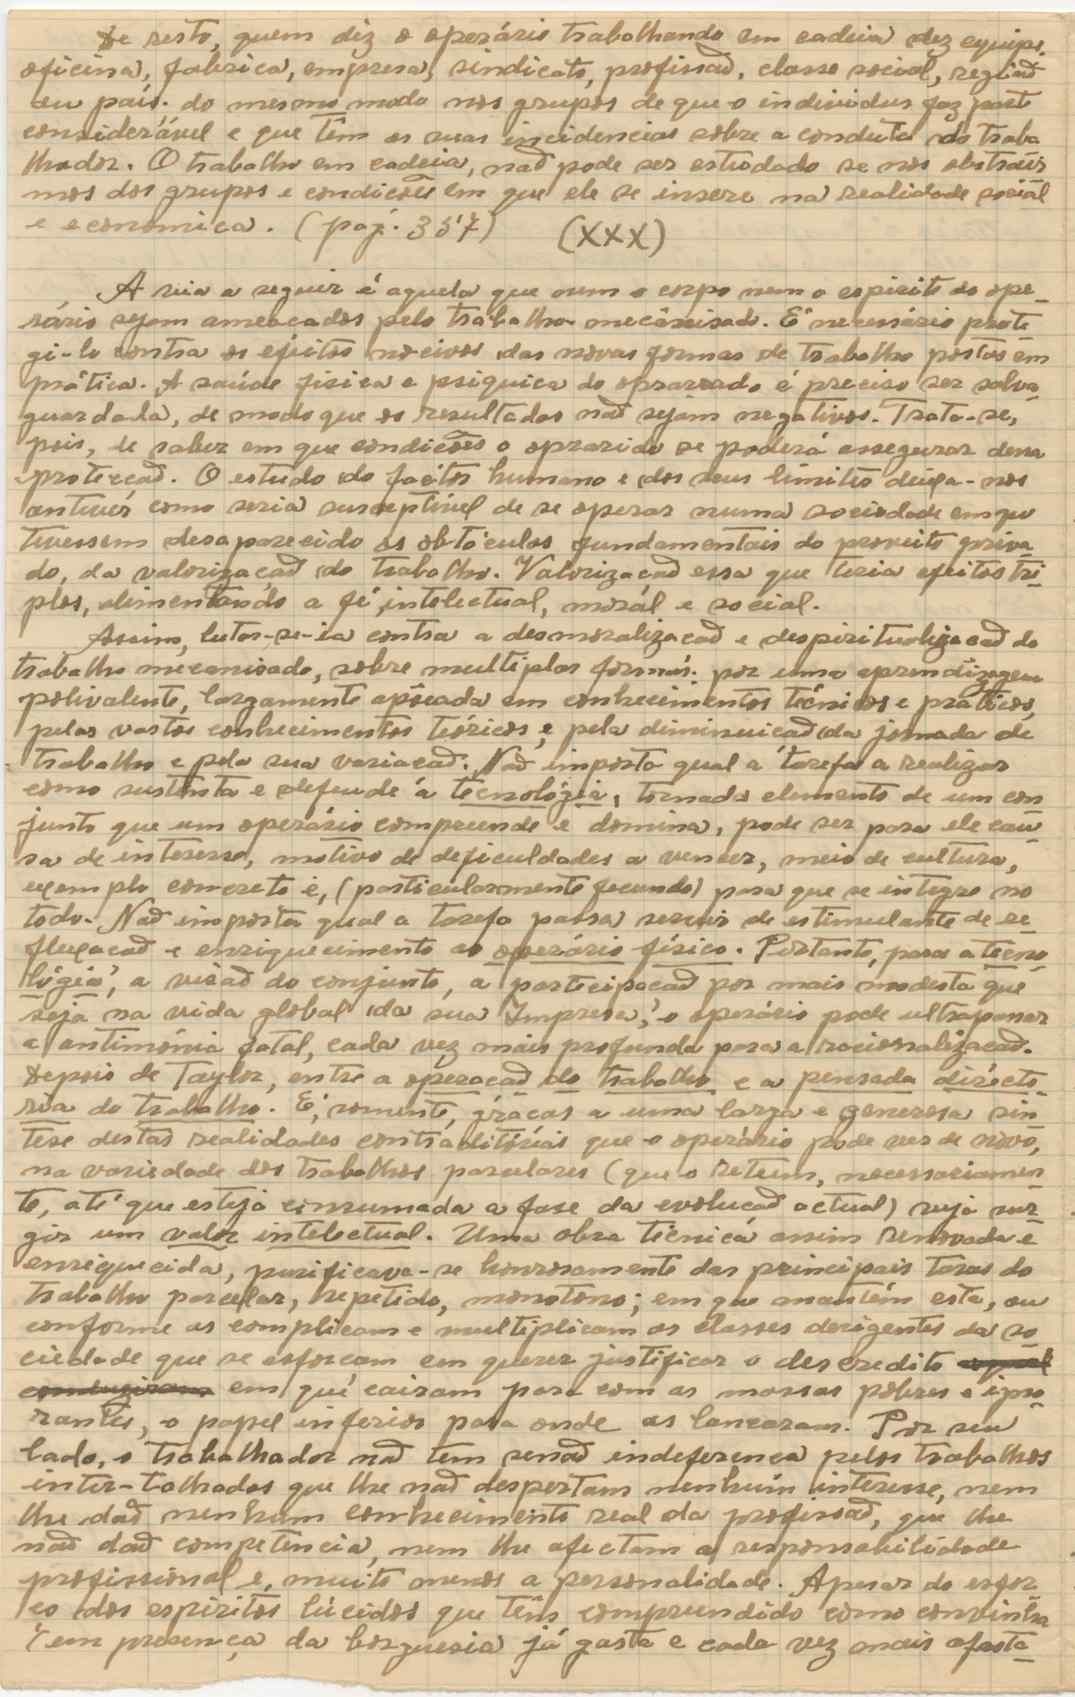 De resto, quem diz o operário trabalhando em cadeia dez equipe,
oficina, fábrica, empresa, sindicáto, profissaõ, classe social, regiaõ
ou país. do mesmo modo nos grupos de que o individuo faz parte
considerável e que têm as suas incidencias sobre a conduta do traba
lhador. O trabalho em cadeia, naõ pode ser estudado se nos abstrair
mos dos grupos e condicoẽs em que ele se insere na realidade social
e economica. (pag. 357) (XXX)
A via a seguir é aquela que num o corpo nem o espirito do ope-
rário sejam ameacados pelo trabalho mecânisado. É necessário prote
gi-lo contra os efeitos nocivos das novas formas de trabalho postos em
prática. A saúde fisica e psiquica do operariado é preciso ser salva-
guardada, de modo que os resultados naõ sejam negativos. Trata-se,
pois, de saber em que condicoẽs o operario se poderá assegurar dessa
protecaõ. O estudo do factor humano e dos seus limites deixa-nos
antever como seria susceptivel de se operar numa sociedade em que
tivessem desaparecido os obstáculos fundamentais do proveito priva-
do, da valorizacaõ do trabalho. Valorizacaõ essa que teria efeitos tri-
plos, alimentando a fé intelectual, morál e social.
Assim, lutar-se-ia contra a desmoralizacaõ e despiritualizacaõ do
trabalho mecanisado, sobre multiplas formas: por uma aprendizagem
polivalente, largamente apoiada em conhecimentos técnicos e praticos,
pelos vastos conhecimentos teóricos, e pela diminuicaõ da jornada de
trabalho e pela sua variacaõ. Naõ importa qual a tarefa a realizar
como sustenta e defende a tecnológia, tornada elemento de um con
junto que um operário compreende e domina, pode ser para ele cau-
sa de interesse, motivo de deficuldades a vencer, meio de cultura,
exemplo concreto e, (particularmente fecundo) para que se integre no
todo. Naõ importa qual a tarefa possa servir de estimulante de re-
flexacaõ e enriquecimento ao operário físico. Portanto, para a tecno-
lógia, a visaõ do conjunto, a participacaõ por mais modesta que
seja na vida global da sua Impresa, o operário pode ultrapassar
a antimónia fatal, cada vez mais profunda para a racionalizacaõ.
Depois de Taylor, entre a operacaõ do trabalho e a pensada directo
ria do trabalho. E, somente, gracas a uma larga e generosa sin-
tese destas realidades contraditórias que o operário pode ver de novo,
na variedade dos trabalhos parcelares (que o retem, necessariamen-
te, até que esteja consumada a fase da evolucaõ actual) seja sur-
gir um valor intelectual. Uma obra técnica assim renovada e
enriquecida, purificava-se honrosamente das principais taras do
trabalho parcelar, repetido, monotono; em que mantém esta, ou
conforme as complicam e multiplicam as classes derigentes da so-
ciedade que se esforcam em querer justificar o descredito
em que cairam para com as massas pobres e igno-
rantes, o papel inferior para onde as lancaram. Por seu
lado, o trabalhador naõ tem senaõ indeferença pelos trabalhos
inter-talhados que lhe naõ despertam nenhúm interesse, nem
lhe daõ nenhum conhecimento real da profissaõ, que lhe
naõ daõ competencia, nem lhe afectam a responsabilidade
profissional e, muito menos a personalidade. Apesar do esfor
co dos espiritos lúcidos que têm compreendido como convinha
(em presença da borguesia já gasta e cada vez mais afasta-